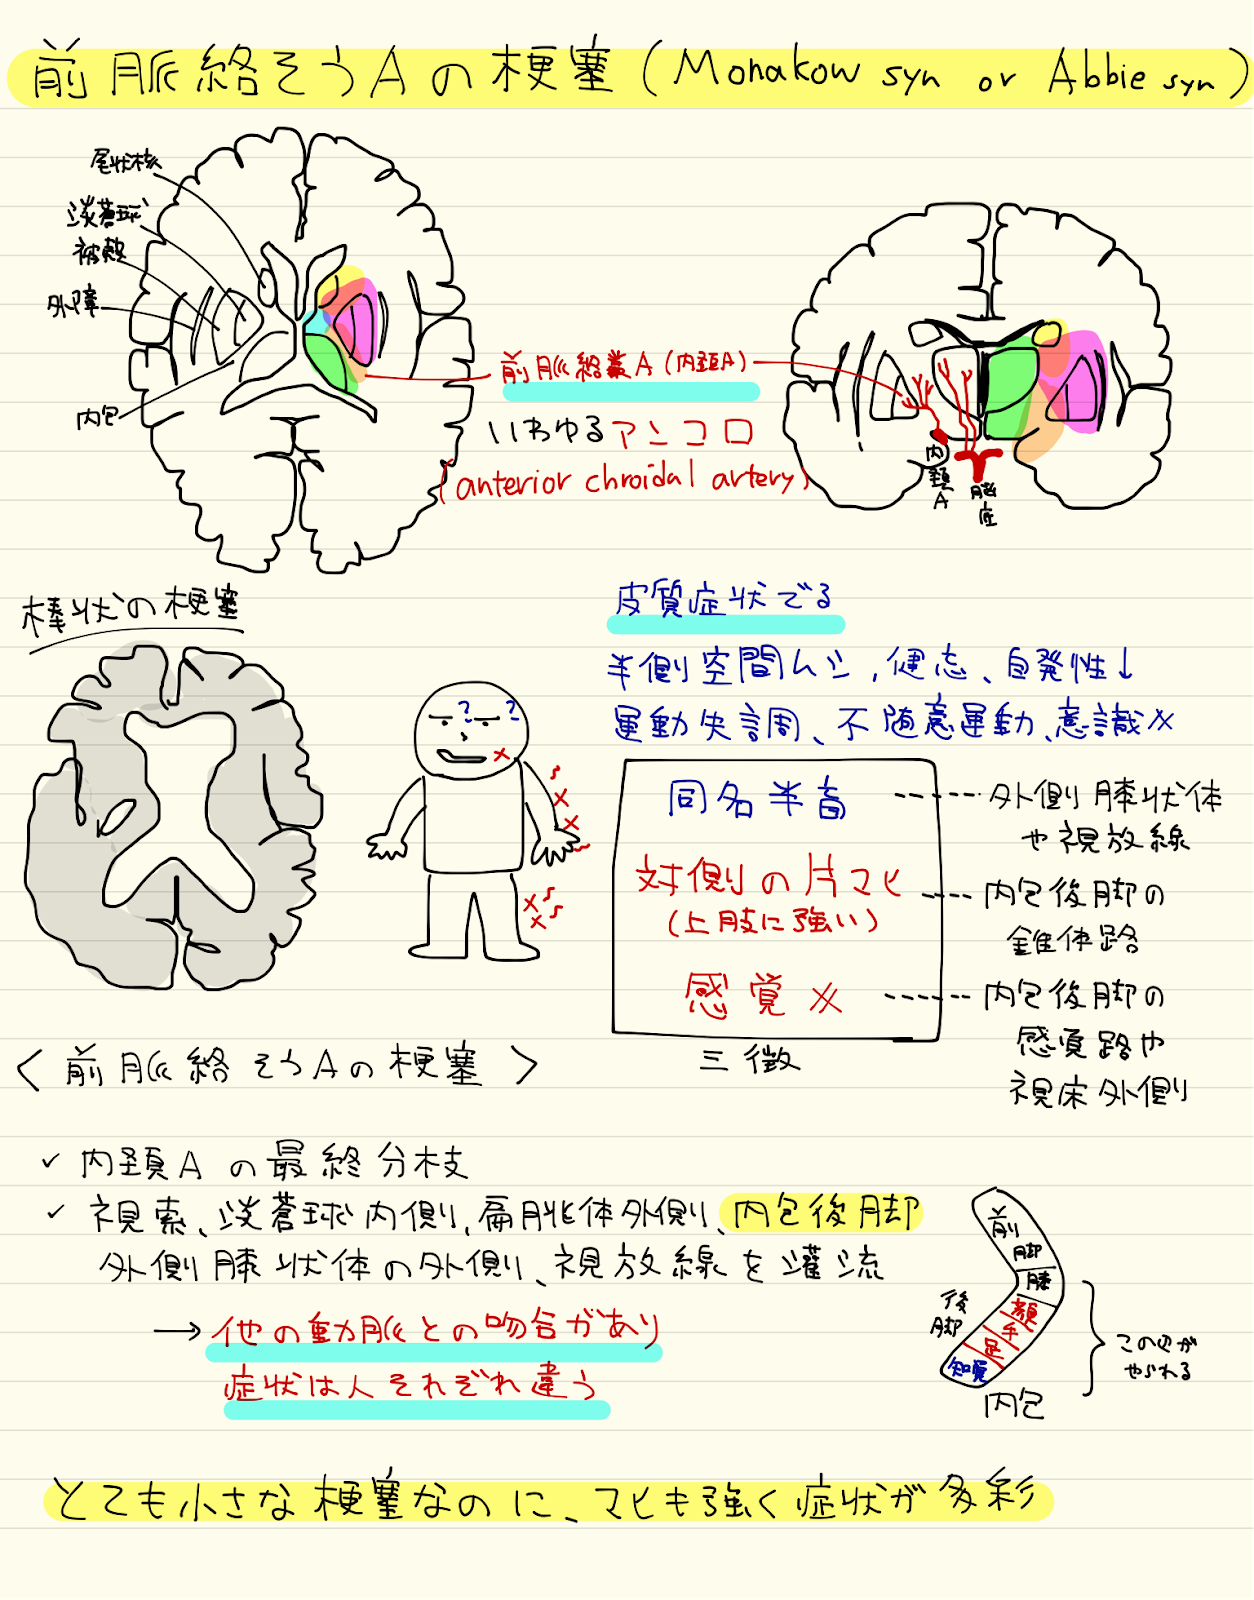 前脈絡そうAの梗塞(Monakow syn or Abbie syn)
尾状核
淡蒼球
被殻
外障
内包
前脈絡叢A(内頚A)
いわゆるアンコロ
(anterior chroidal artery)
内頚A
脳底
棒状の梗塞
皮質症状でる
半側空間ムシ,健忘、自発性↓
運動失調、不随意運動、意識✕
同名半盲
外側膝状体
や視放線
対側の片マヒ
(上肢に強い)
内包後脚の
錐体路
感覚✕
内包後脚の
感覚路や
視床外側
三徴
?
?
<前脈絡そうAの梗塞>
✓ 内頚Aの最終分枝
✓ 視索、淡蒼球内側,扁桃体外側、内包後脚
外側膝状体の外側、視放線を灌流
→他の動脈との吻合があり
症状は人それぞれ違う
前脚
膝
後脚
顔
手
足
知覚
内包
この辺が
やられる
とても小さな梗塞なのに、マヒも強く症状が多彩